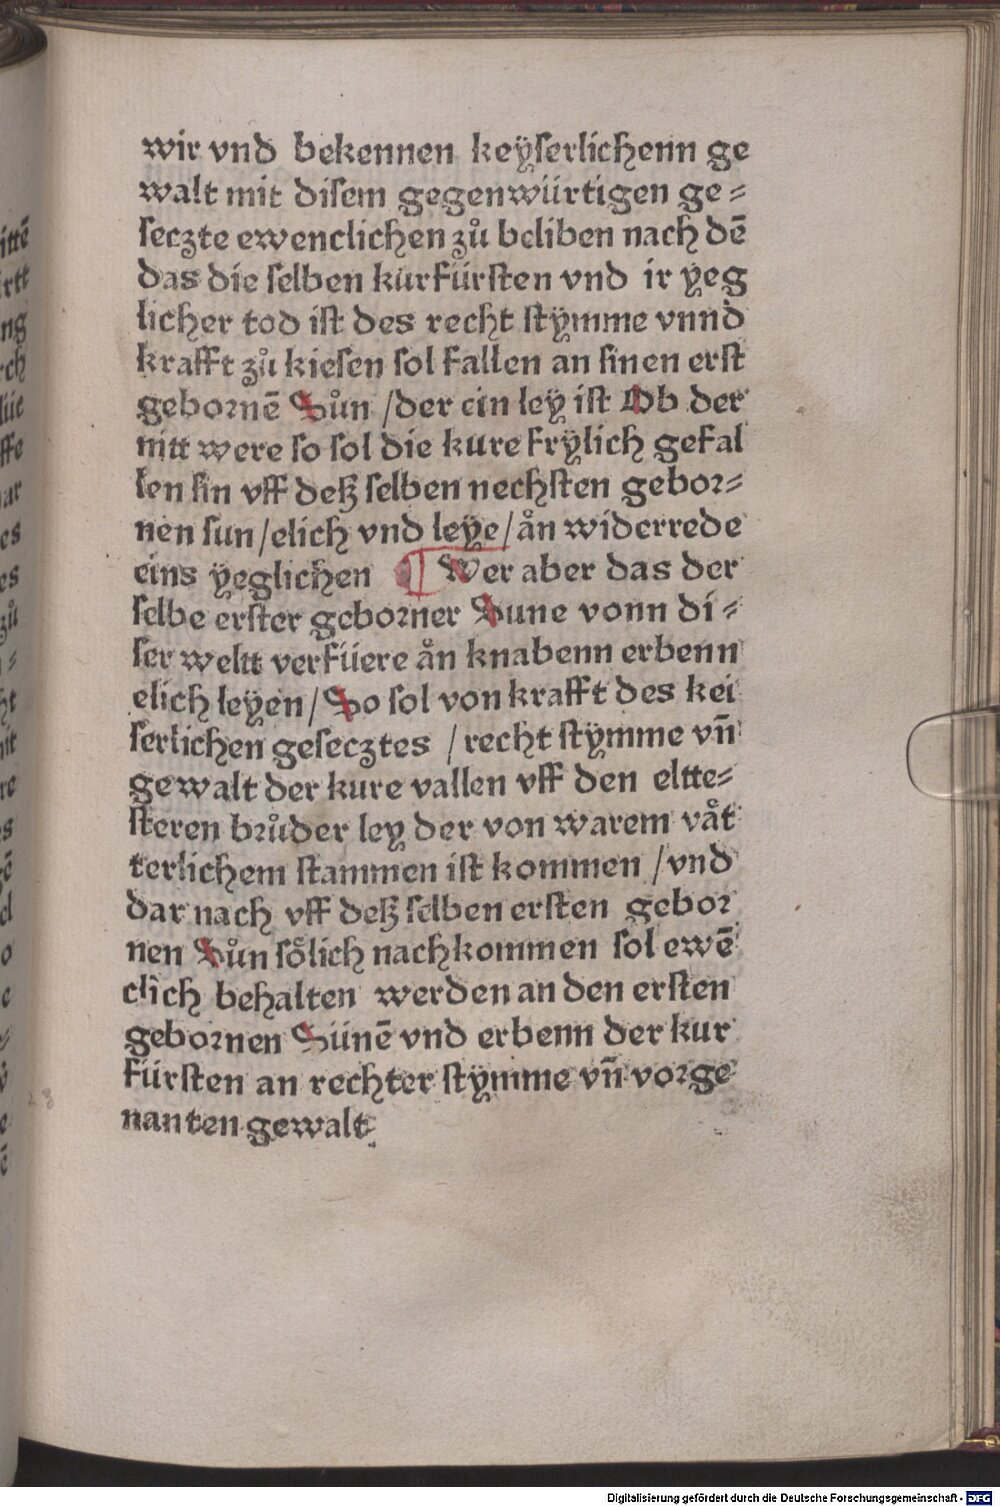 wir vnd bekennen keÿserlichenn ge
walt mit disem gegenwüirtigen ge⸗
seczte ewenclichen zů beliben nach dē
das die selben kurfürsten vnd ir ÿeg
licher tod ist des recht stÿmme vnnd
krafft zů kiesen sol fallen an sinen erst
gebornē Sůn /der ein leÿ ist Ob der
nitt were so sol die kure frÿlich gefal
len sin vff deß selben nechsten gebor⸗
nen sun/elich vnd leÿe/ån widerrede
eins ÿeglichen ¶ Wer aber das der
selbe erster geborner Sune vonn di⸗
ser weltt verfüere ån knabenn erbenn
elich leyen/ So sol von krafft des kei
serlichen gesecztes /recht stÿmme vn̄
gewalt der kure vallen vff den eltte⸗
steren brůder ley der von warem våt
terlichem stammen ist kommen /vnd
dar nach vff deß selben ersten gebor
nen Sůn sőlich nachkommen sol ewē
clich behalten werden an den ersten
gebornen Sünē vnd erbenn der kur
fürsten an rechter stÿmme vn̄ vorge
nanten gewalt
Digitalisierung gefördert durch die Deutsche Forschungsgemeinschaft - DFG